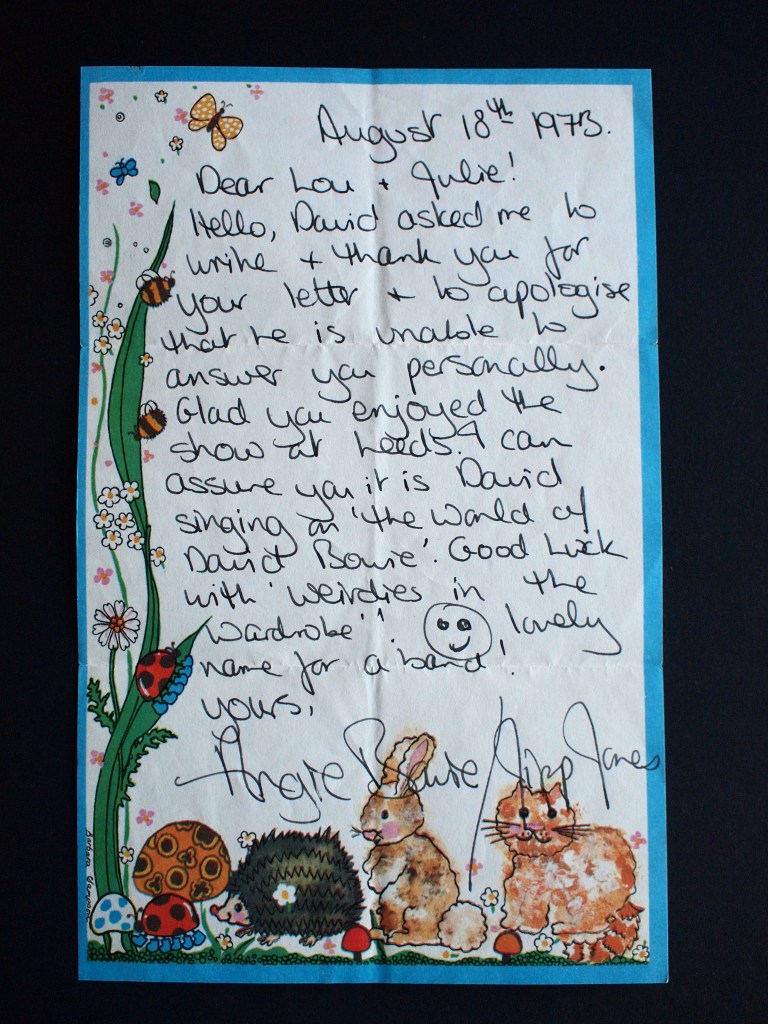 August 18th 1973.
Dear Lou + Julie!
Hello, David asked me to
write + thank you for
your letter + to apologise
that he is unable to
answer you personally.
Glad you enjoyed the
show at Leeds. I can
assure you it is David
singing on 'The World of
David Bowie'. Good Luck
with 'Weirdies in the
Wardrobe'! lovely
name for a band!
yours,
Angie Bowie Jipp Jones
Barbara